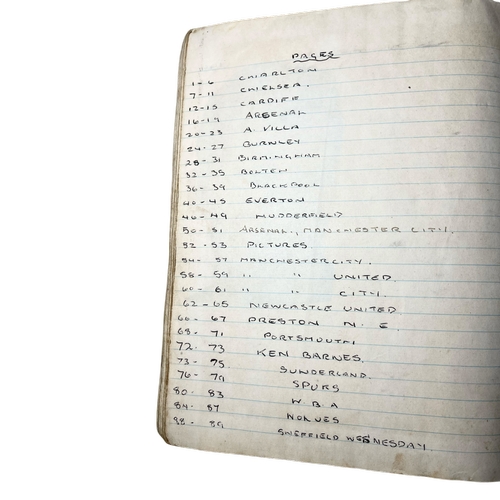 PAGES
1-6 CHARLTON
7-11 CHELSEA.
12-15 CARDIFF
16-19 ARSENAL
20-23 A. VILLA
24-27 BURNLEY
28-31 BIRMINGHAM
32-35 BOLTEN
36-39 BLACKPOOL
40-45 EVERTON
46-49 HUDDERFIELD
50-51 ARSENAL., MANCHESTER CITY.
52-53 PICTURES.
54-57 MANCHESTER CITY.
58-59 " " UNITED.
60-61 " " CITY.
62-65 NEWCASTLE UNITED
66-67 PRESTON N. E.
68-71 PORTSMOUTH
72-73 KEN BARNES.
73-75 SUNDERLAND.
76-79 SPURS
80-83 W.B.A
84-87 WOLVES
88-89 SHEFFIELD WEDNESDAY.